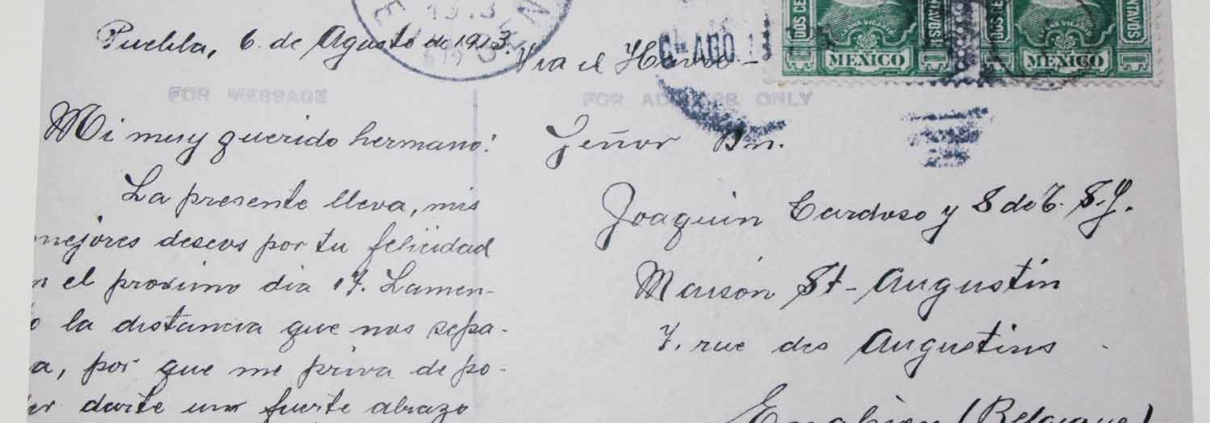 Puebla, 6 de Agosto de 1913.
FOR MESSAGE
Mi muy querido hermano:
La presente lleva, mis
mejores deseos por tu felicidad
n el proximo dia 17. Lamen-
o la distancia que nos sepa-
a, por que me priva de po-
er darte un fuerte abrazo
Via el Havre-
FOR ADDRESS ONLY
Señor Dn.
Joaquin Cardoso y S. de T. S.J.
Maison St-Augustin
7. rue des Augustins
Enghien (Belgique)
AGO
MEXICO
MEXICO
CENTAVOS